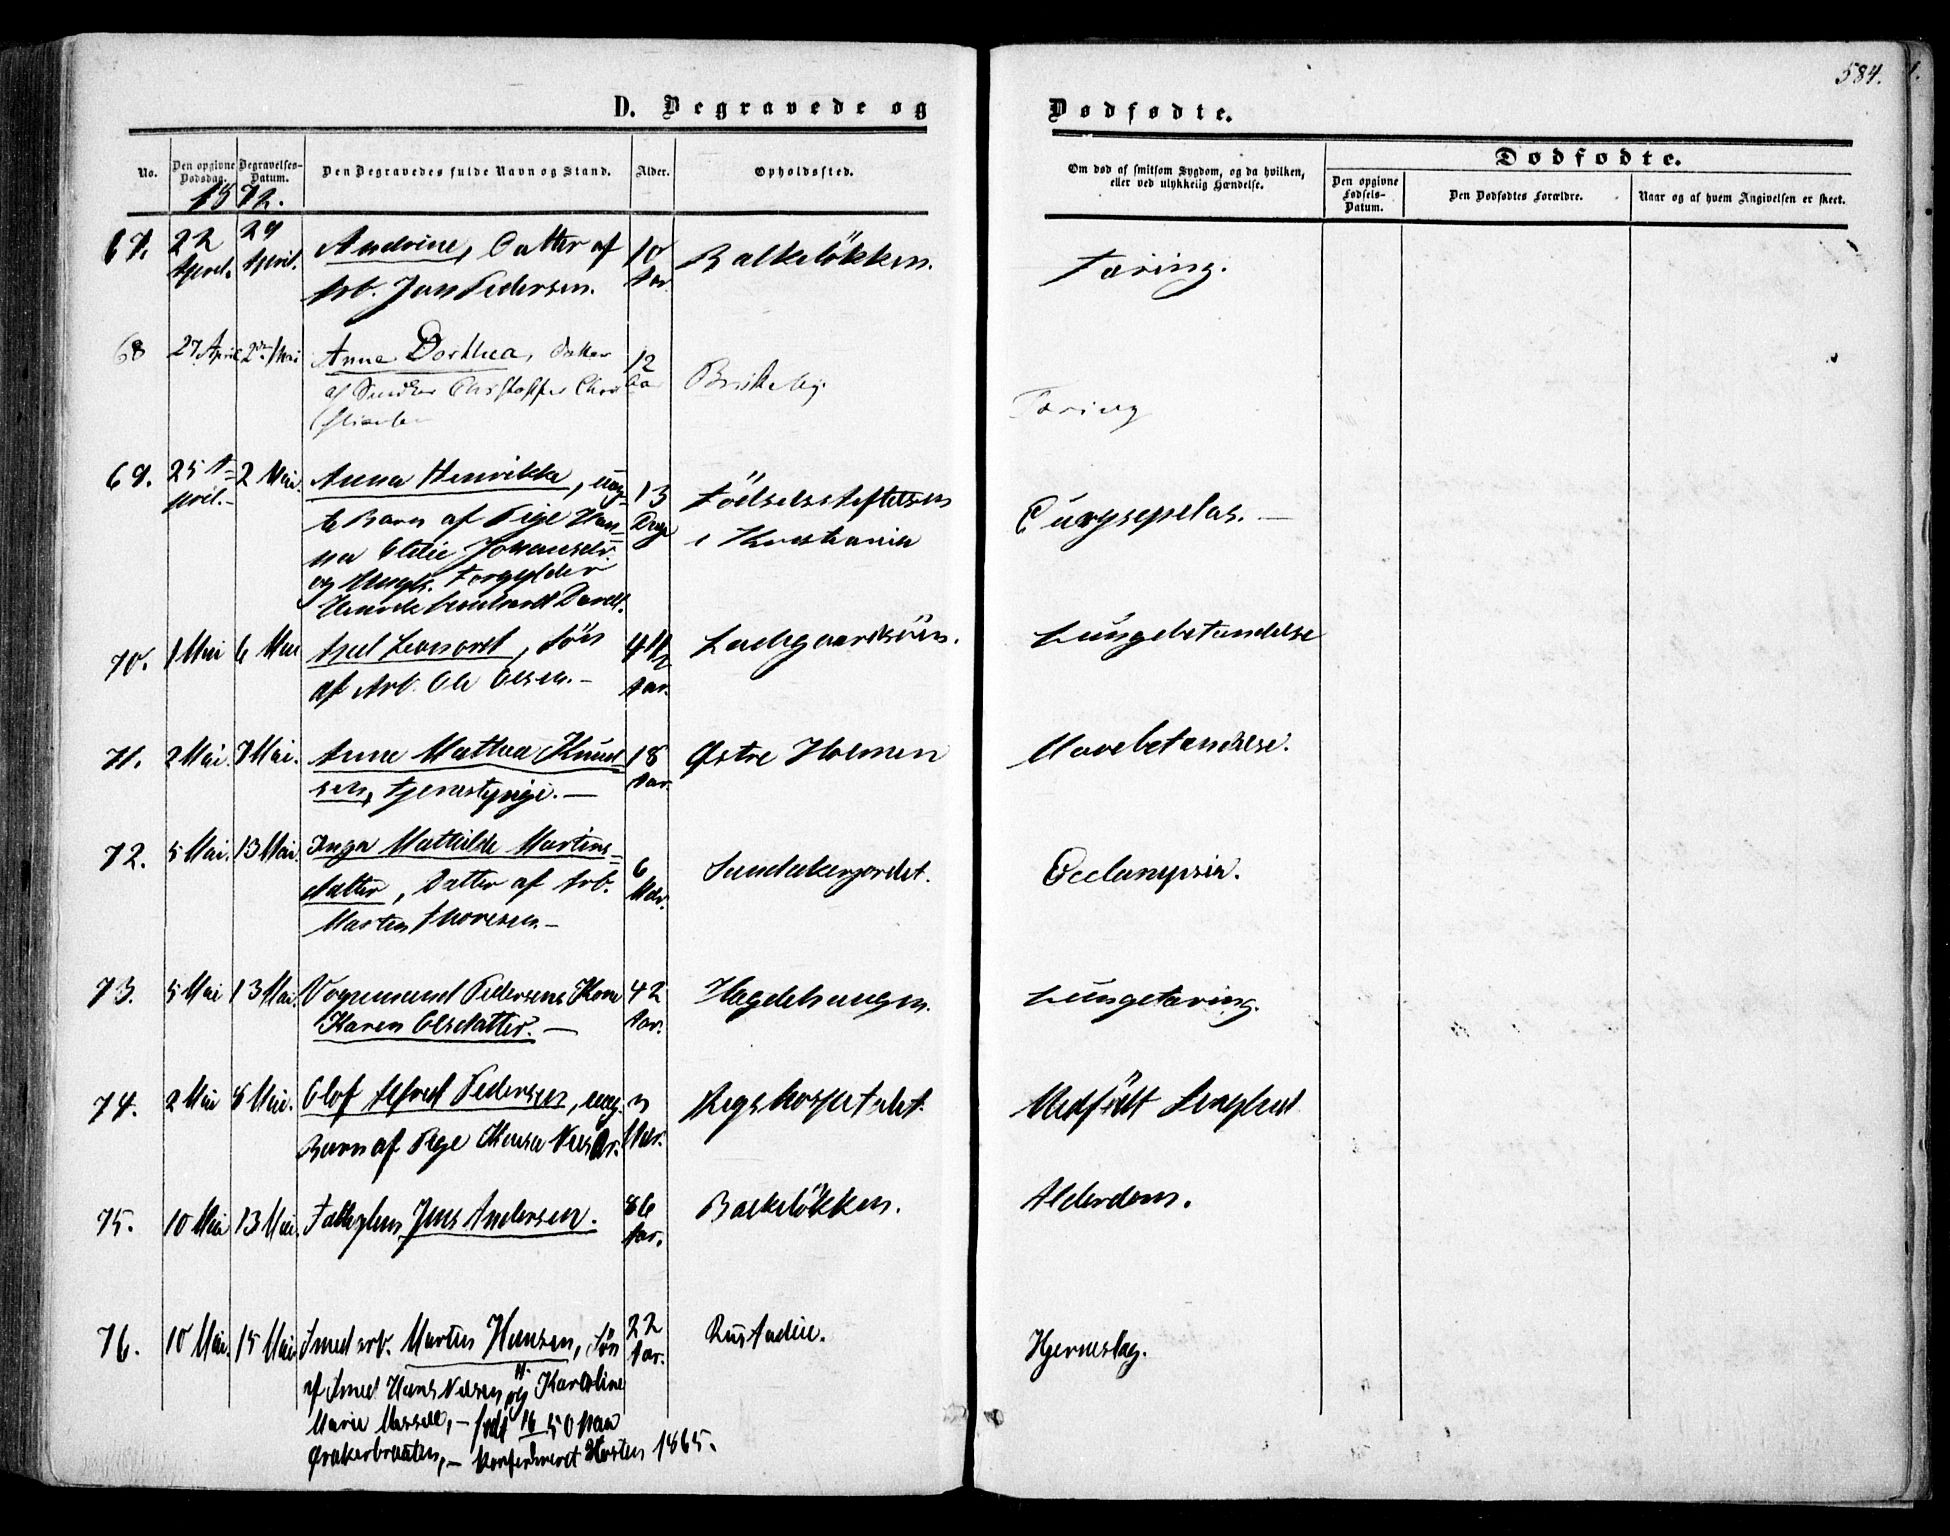 584.
D. Begravede og Dødfødte.
No.
Den opgivne Dødsdag.
Begravelses-Datum.
Den Begravedes fulde Navn og Stand.
Alder.
Opholdssted.
Om død af smitsom Sygdom, og da hvilken,
eller ved ulykkelig Hændelse.
Dødfødte.
Den opgivne Fødsels-Datum.
Den Dødfødtes Forældre.
Naar og af hvem Angivelsen er skeet.
1872.
67. 22 April. 29 April. Andrine, Datter af 10 Aar Balkeløkken. Tæring.
Arb. Jens Pedersen.
68 27 April 2den Mai Anna Dorthea, Datter 12 Aar Briskeby. Tæring
af Christoffer
69. 25 April. 2 Mai. Anna Henrikke, uæg- 13 Dage Fødselsstiftelsen
te Barn af Pige Han-
i Kristiania
na Johansdr.
og Ungk. Forgylder
Henrik
70. 1 Mai 6 Mai Axel Leonard, Søn 4 1/2 Aar. Ladegaardsøen. Lungebetændelse
af Arb. Ole Olsen.-
71. 2 Mai. 7 Mai. Anne Mathea Knud- 18 Aar. Østre Holmen Mavebetændelse.
sen, tjenestepige.-
72. 5 Mai. 13 Mai. Inga Mathilde Martins- 6 Mdr. Sandakerjordet. Eclampsia.
datter, Datter af Arb.
Martin Thoresen.-
73. 5 Mai 13 Mai. Pedersens Kone 42 Aar. Hegdehaugen. Lungetæring.
Karen Olsdatter.-
74. 2 Mai 8 Mai. Olof Alfred Pedersen, uæg. Mdr. Rigshospitalet. Medfødt
Barn af Pige
75. 10 Mai 13 Mai. Jens Andersen. 86 Aar. Balkeløkken. Alderdom.
76. 10 Mai. 15 Mai Smedarb. Martin Hansen, Søn 22 Aar. Rustadeie. Hjerneslag.
af Smed Hans Nilsen og Karoline
Marie - født 50 paa
- konfirmeret Høsten 1865.